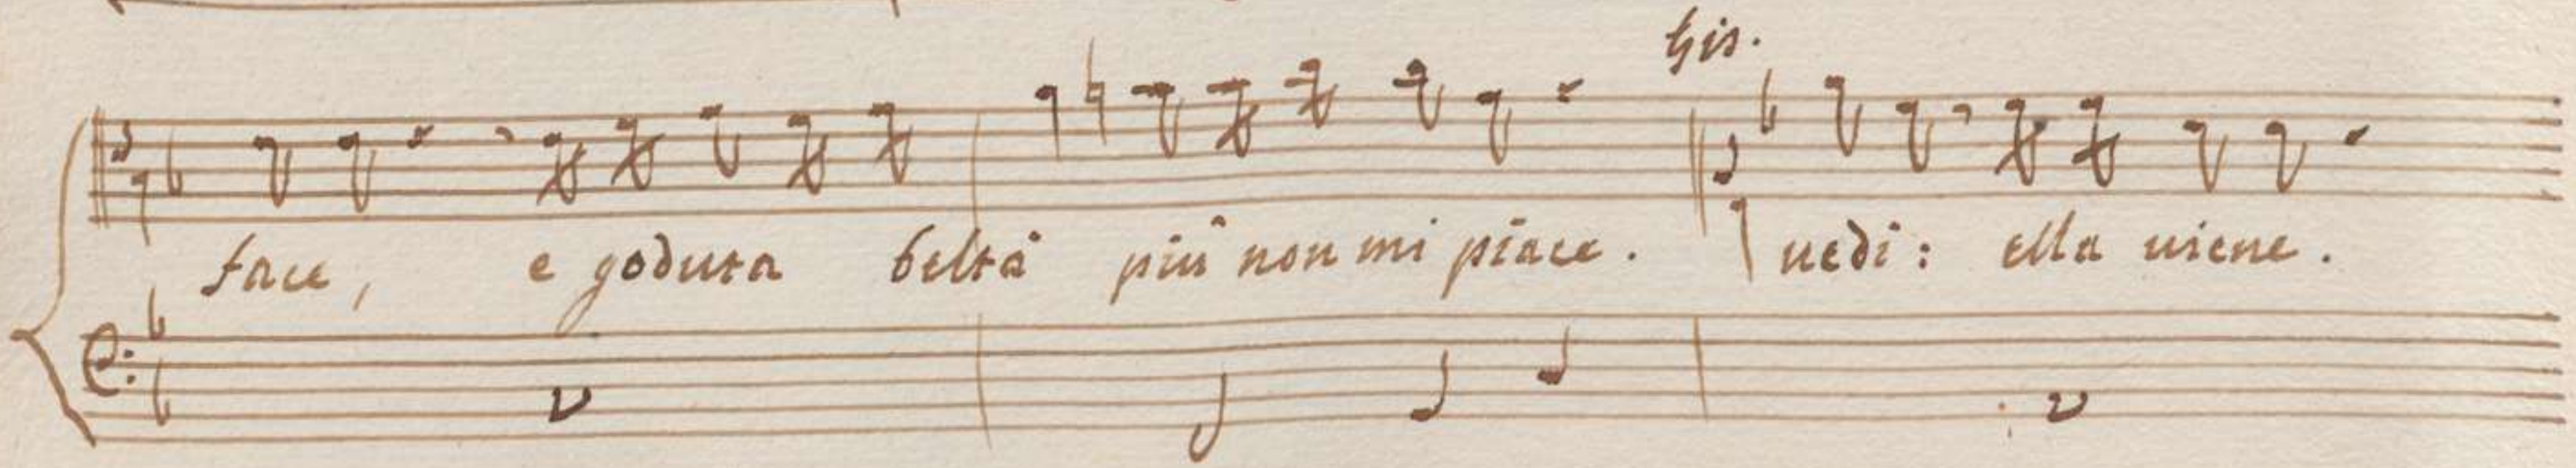 Gis.
face, e goduta beltà più non mi piace. vedi: ella viene.